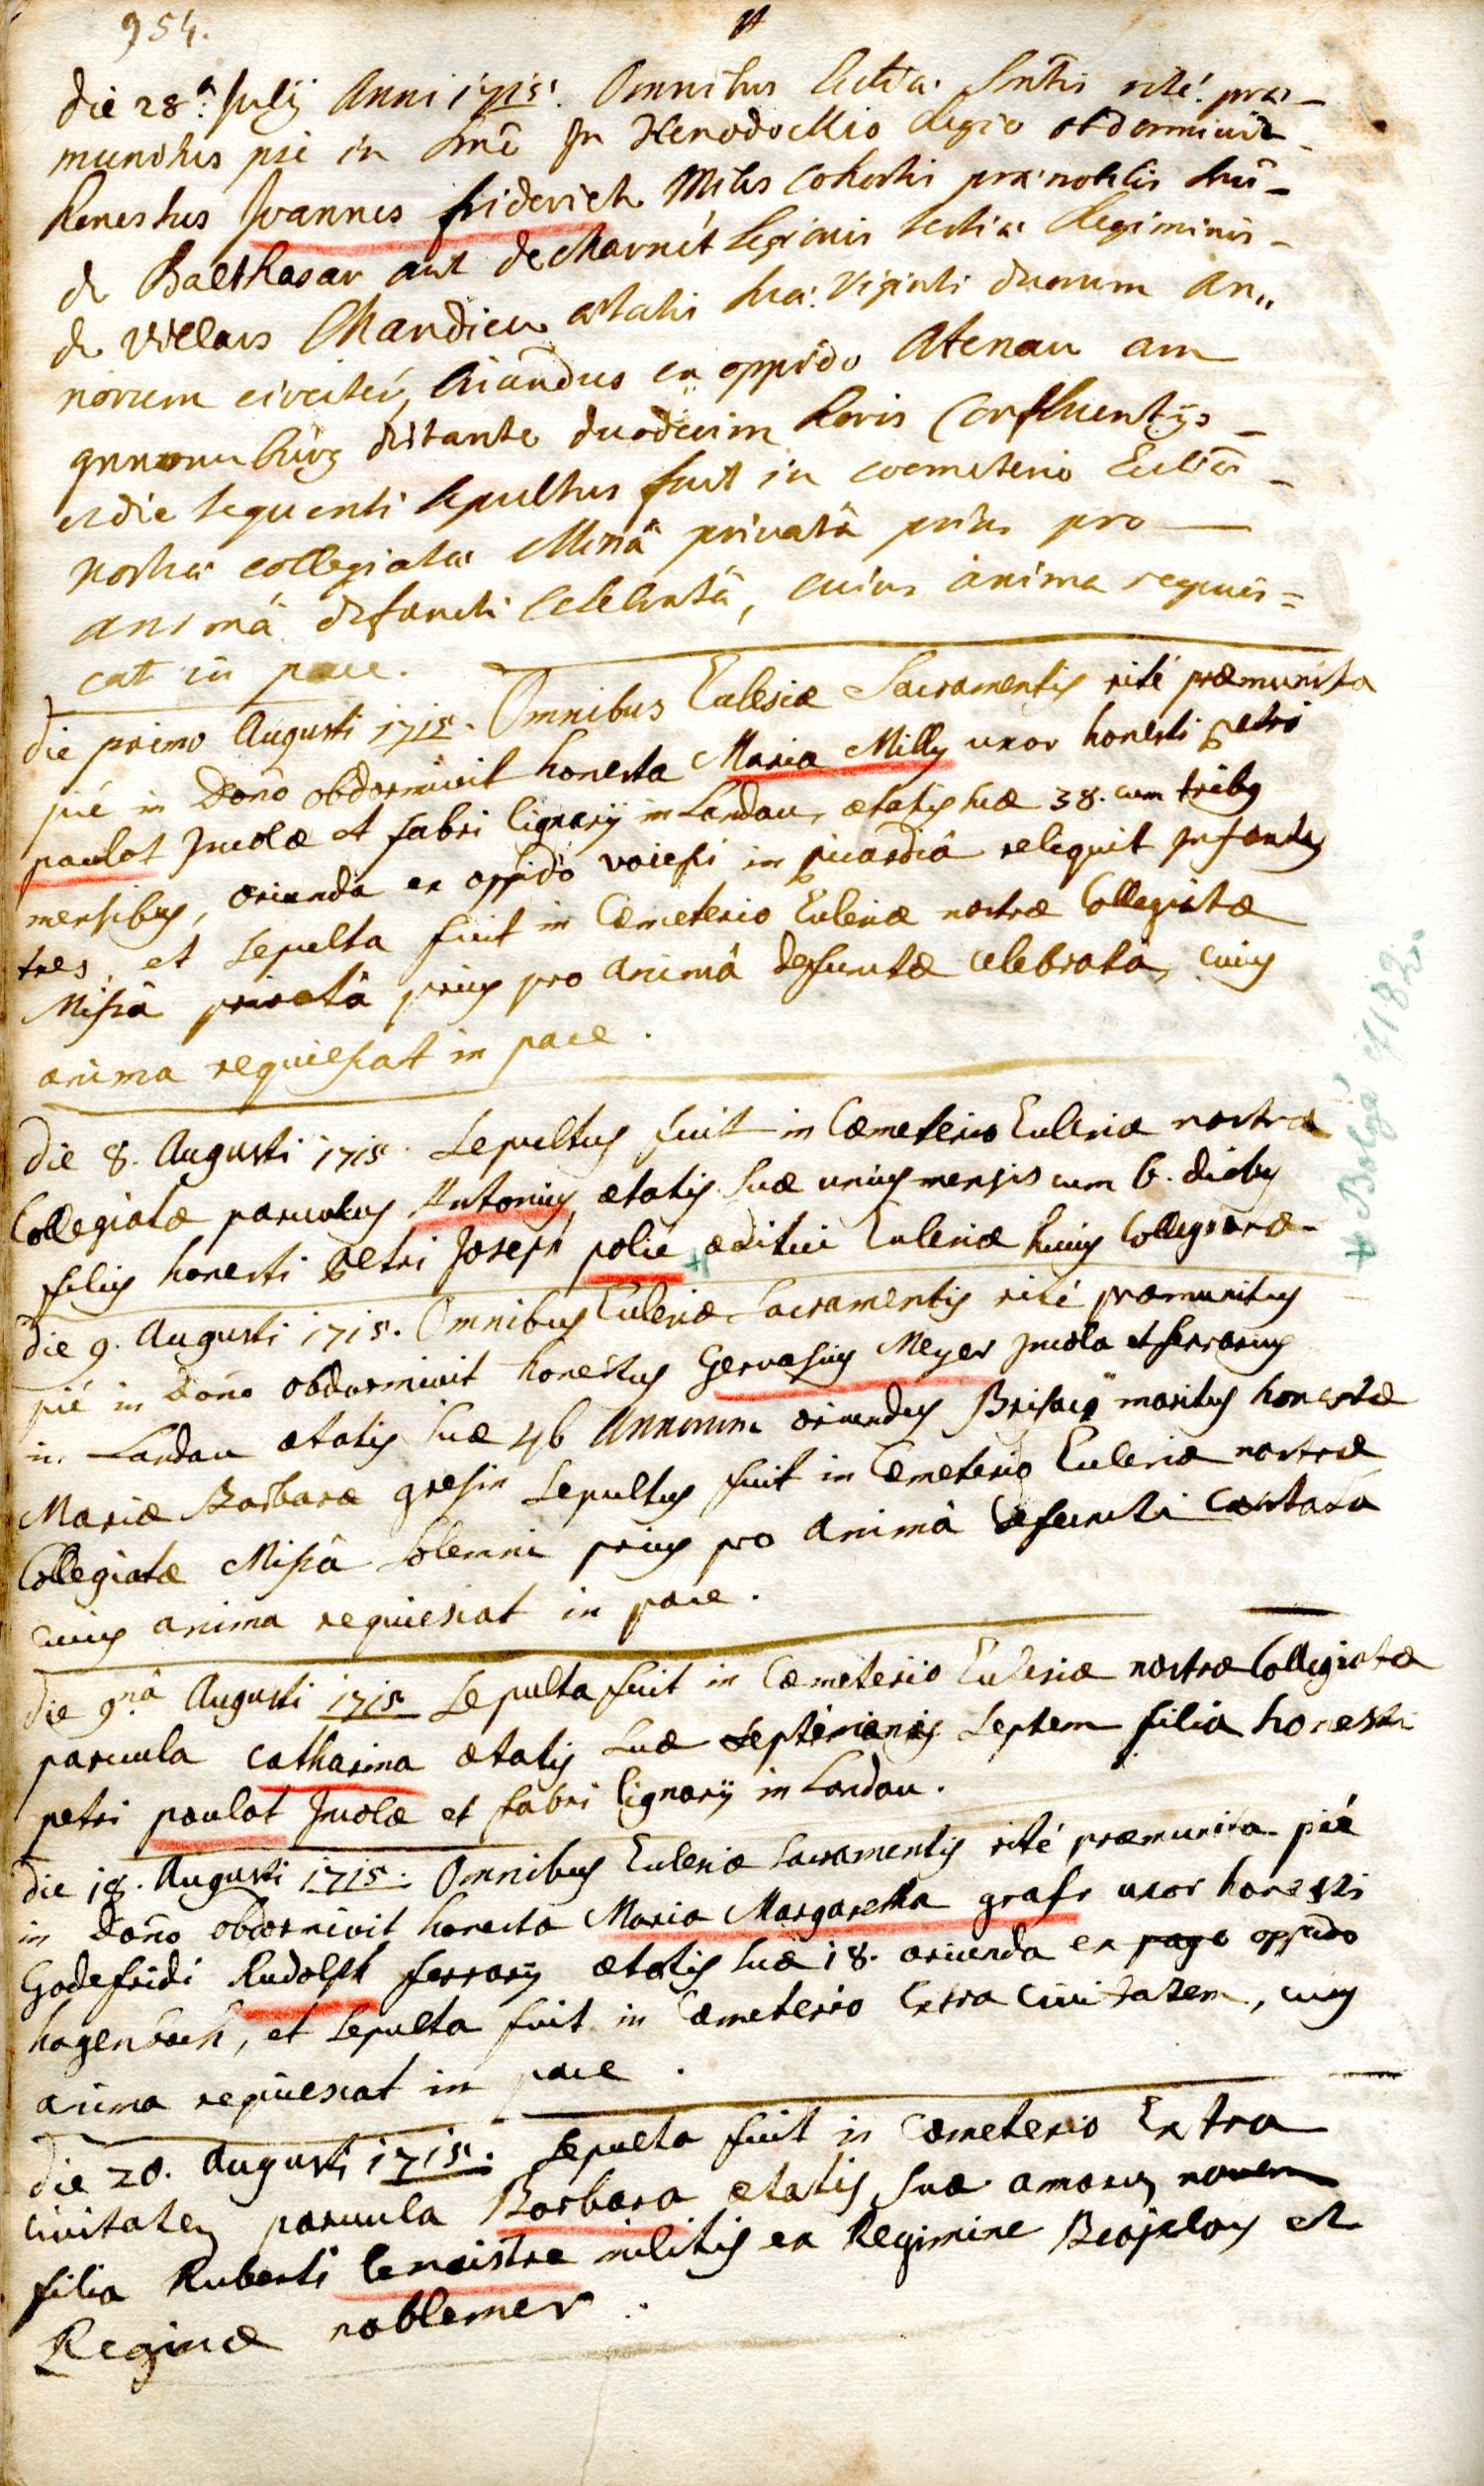 954.
die 28ª Julij Anni 1715. Omnibus Ecclæ Sntis rité præ-
munitus pié in Dnõ in Xenodochio Regio obdormivit
honestus Joannes friderich Miles cohortis prænobilis Dnĩ
de Balthasar aut de charnét Legionis Regiminis
de Villars Chandieu ætatis suæ viginti duorum an„
norum circiter, oriundus ex oppido Atenau am
distante duodecim horis Confluentijs
et die sequenti sepultus fuit in coemeterio Ecclæ
nostræ collegiatæ Missâ privatâ prius pro
animâ defuncti celebratâ, cuius anima requies=
cat in pace.
Die primo Augusti 1715. Omnibus Ecclesiæ Sacramentis rité præmunita
pié in Dono obdormivit honesta Maria Milly uxor honesti petri
paulot Jncolæ et fabri lignarij in Landau, ætatis suæ 38. cum tribus
mensibus, oriunda ex oppido voiessi in picardiâ reliquit Jnfantes
tres, et sepulta fuit in Cæmeterio Ecclesiæ nostræ Collegiatæ
Missâ privatâ prius pro animâ defunctæ celebratâ, cuius
anima requiescat in pace.
Die 8. Augusti 1715. Sepultus fuit in Cæmeterio Ecclesiæ nostræ
Collegiatæ parvulus Antonius ætatis suæ unius mensis cum 6. diebus
filius honesti petri Joseph polie + æditui Ecclesiæ huius Collegiatæ
+ Bolza 7182
Die 9. Augusti 1715. Omnibus Ecclesiæ Sacramentis rité præmunitus
pié in Dono obdormivit honestus Gervasius Meyer Jncola et ferrarius
in Landau ætatis suæ 46 Annorum oriundus Brisaco maritus honestæ
Mariæ Barbaræ gresin Sepultus fuit in Cæmeterio Ecclesiæ nostræ
Collegiatæ Missâ Solemni prius pro animâ defuncti cantatâ
cuius anima requiescat in pace.
Die 9nâ Augusti 1715 Sepulta fuit in Cæmeterio Ecclesiæ nostræ Collegiatæ
parvula Catharina ætatis suæ Septem filia honesti
petri paulot Jncolæ et fabri lignarij in Landau.
Die 18. Augusti 1715. Omnibus Ecclesiæ Sacramentis rité præmunita pié
in Dono obdormivit honesta Maria Margaretha grafs uxor honesti
Godefridi Rudolph ferrarij ætatis suæ 18. oriunda ex pago oppido
hagenbach, et sepulta fuit in Cæmeterio Extra Civitatem, cuius
anima requiescat in pace.
Die 20. Augusti 1715. Sepulta fuit in Cæmeterio Extra
civitatem parvula Barbara ætatis suæ novem
filia Ruberti lemaistre militis ex Regimine et
Reginæ noblemer